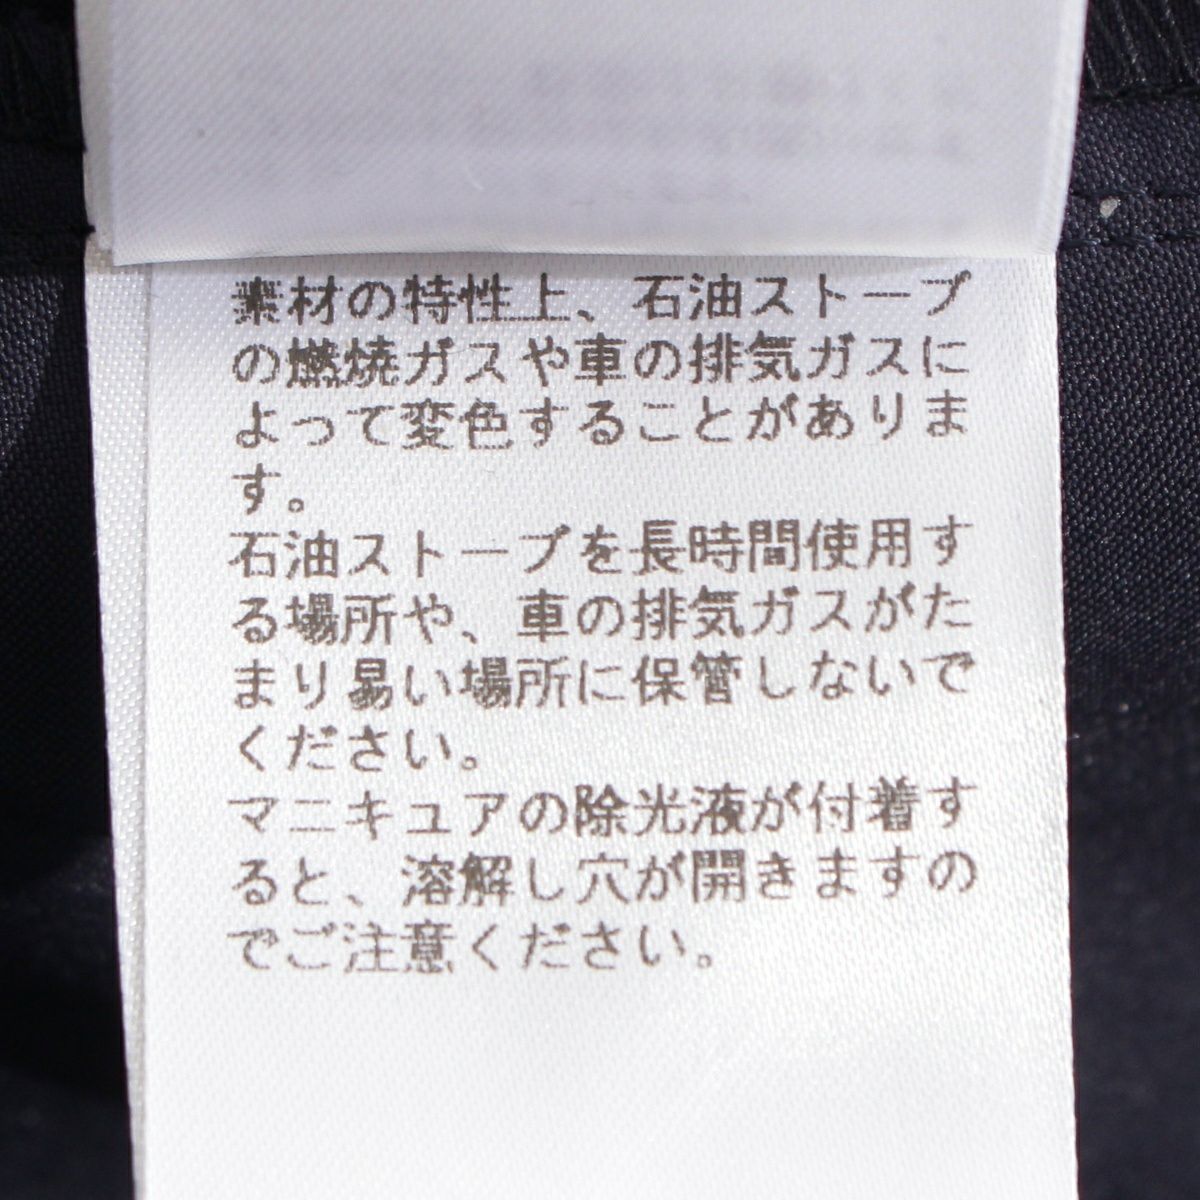 素材の特性上、石油ストーブ
の燃焼ガスや車の排気ガスに
よって変色することがありま
す。
石油ストーブを長時間使用す
る場所や、車の排気ガスがた
まり易い場所に保管しないで
ください。
マニキュアの除光液が付着す
ると、溶解し穴が開きますの
でご注意ください。